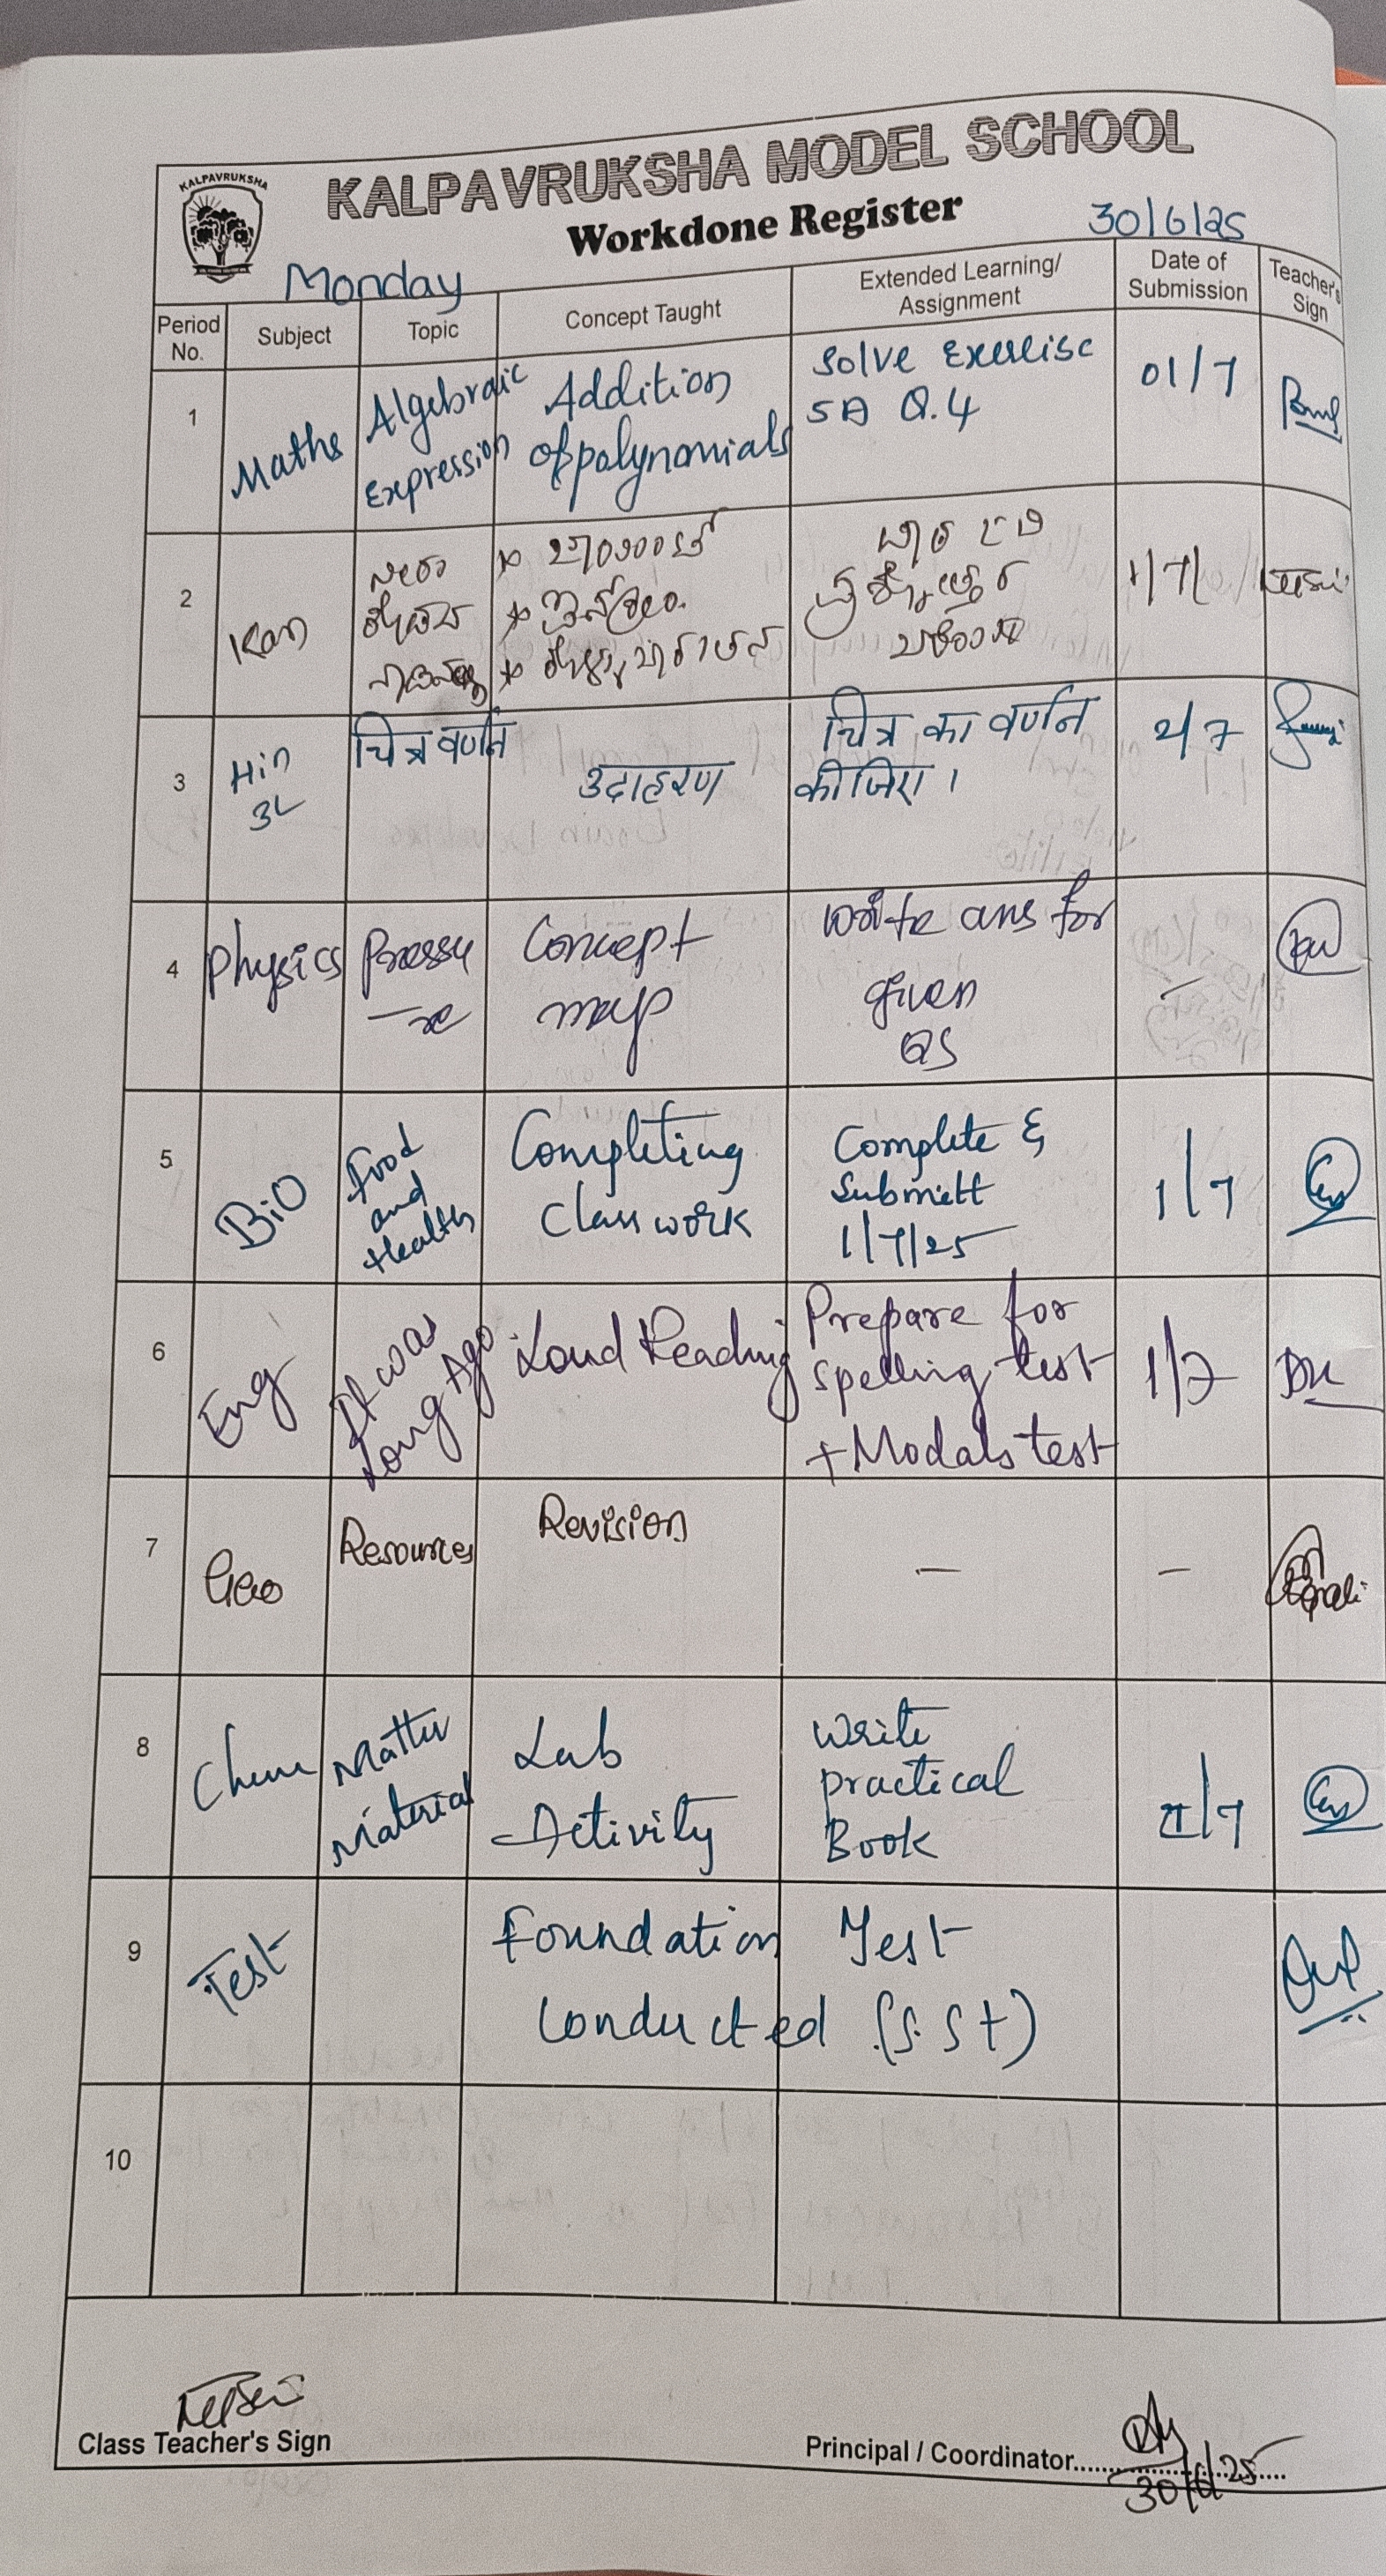 KALPAVRUKSHA
KALPAVRUKSHA MODEL SCHOOL
Workdone Register
30/6/25
Monday
Period No.
Subject
Topic
Concept Taught
Extended Learning/ Assignment
Date of Submission
Teacher's Sign
1
Maths
Algebraic
Expression
Addition
of polynomials
Solve Exercise
5A Q.4
01/7
2
Kan
1/7/
3
Hin
3L
चित्र वर्णन
उदाहरण
चित्र का वर्णन
कीजिए।
2/7
4
Physics
Pressu
-re
Concept
map
Write ans for
given
QS
-
5
BiO
Food
and
Health
Completing
Class work
Complete &
Submitt
1/7/25
1/7
6
Eng
It was
Long Ago
Loud Reading
Prepare for
spelling test
+ Modals test
1/7
7
Geo
Resources
Revision
-
-
8
Chem
Matter
Material
Lab
Activity
Write
practical
Book
9
Test
Foundation Test
Conducted (S.St)
10
Class Teacher's Sign
Principal / Coordinator
30/6/25